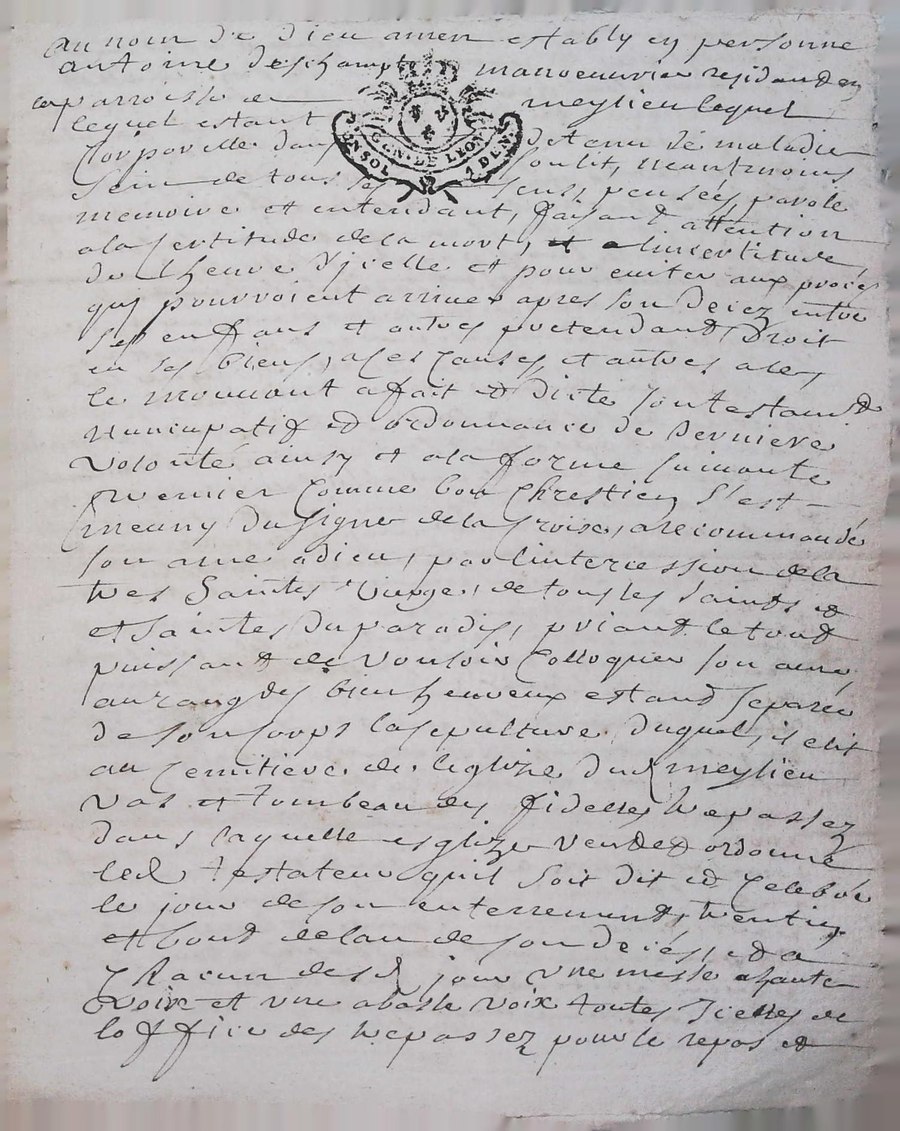 au nom de Dieu amen estably en personne
antoine deschamps manoeuvrier residand en
la parroisse de meylieu lequel
lequel estant detenu de maladie
Corporelle dans son lit, neantmoins
sein de tous ses sens, pensées, parole
memoire et entendant, faisant attention
a la sertitude de la mort, et a lincertitude
de lheure d'jcelle et pour euiter aux procés
quj pourroient arriuer apres son decez entre
ses enfans et autres pretendant Droit
en ses biens, a ces causes, et autres a ce
le mouuant a fait et dicté son testament
Nuncupatif et ordonnance de derniere
volonté ainsy et a la forme suiuante
premier Comme bon Chrestien s'est
meuny du signe de la Croix, a recommandé
son ame a dieu, par linteression de la
tres Sainte Vierge, de tous les saints et
et saintes du paradis, priant le tout
puissant de vouloir Colloquer son ame
au rang des bien heureux estant separée
de son Corps la sepulture duquel, il elit
au Cemitiere de leglize dud meylieu
vas et tombeau des fidelles trepassez
dans laquelle esglize veut et ordonne
led testateur quil soit dit et Celebré
le jour de son enterrement, trentin
et bout de lan de son decés, et a
Chacun desd jour vne messe a haute
voix et vne a basse voix toutes Jcelles de
loffice des trepassez pour le repos et
GEN. DE LYON